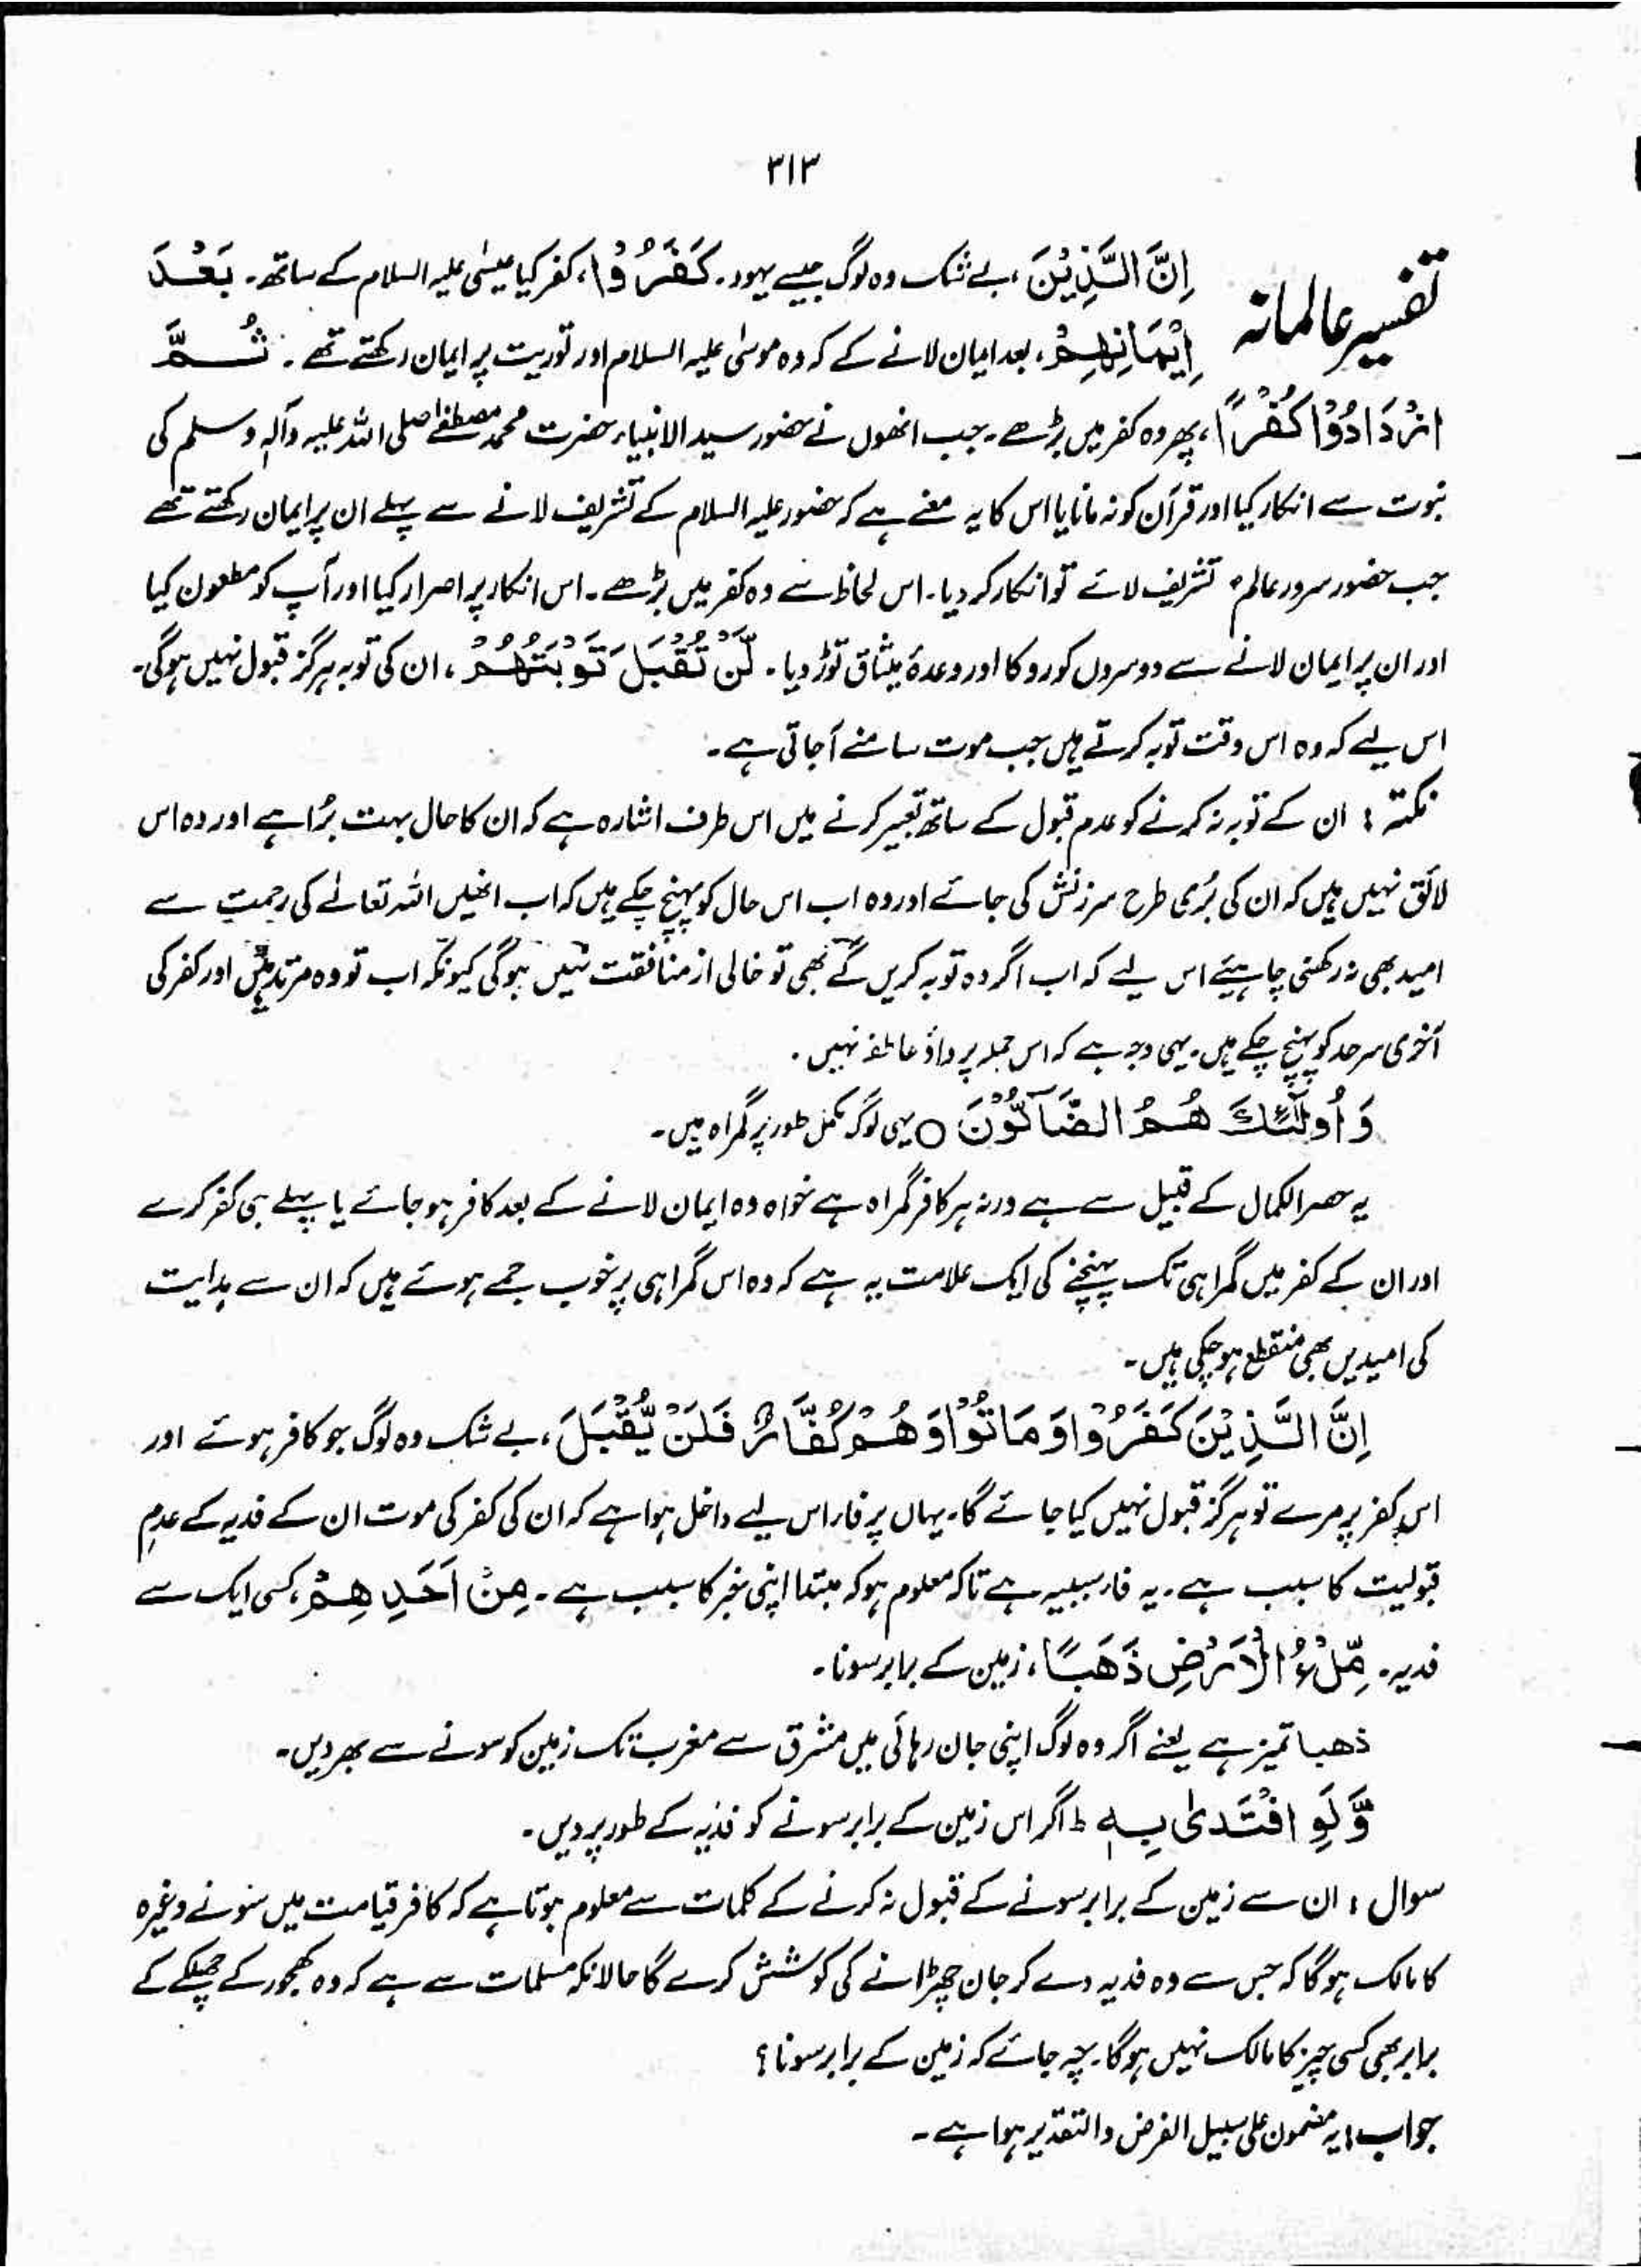 ۳۱۳
تفسیر عالمانہ
اِنَّ الَّذِیْنَ ، بے شک وہ لوگ جیسے یہود۔ کَفَرُوْا، کفر کیا عیسٰی علیہ السلام کے ساتھ۔ بَعْدَ
اِیْمَانِهِمْ، بعد ایمان لانے کے کہ وہ موسٰی علیہ السلام اور توریت پر ایمان رکھتے تھے ۔ ثُمَّ
ازْدَادُوْا کُفْرًا، پھر وہ کفر میں بڑھے۔ جب انھوں نے حضور سید الانبیاء حضرت محمد مصطفےٰ صلی اللہ علیہ وآلہٖ وسلم کی
نبوت سے انکار کیا اور قرآن کو نہ مانا یا اس کا یہ معنے ہے کہ حضور علیہ السلام کے تشریف لانے سے پہلے ان پر ایمان رکھتے تھے
جب حضور سرور عالم تشریف لائے تو انکار کر دیا۔ اس لحاظ سے وہ کفر میں بڑھے۔ اس انکار پر اصرار کیا اور آپ کو مطعون کیا
اور ان پر ایمان لانے سے دوسروں کو روکا اور وعدۂ میثاق توڑ دیا۔ لَّنْ تُقْبَلَ تَوْبَتُهُمْ ، ان کی توبہ ہرگز قبول نہیں ہوگی۔
اس لیے کہ وہ اس وقت توبہ کرتے ہیں جب موت سامنے آجاتی ہے۔
نکتہ : ان کے توبہ نہ کرنے کو عدم قبول کے ساتھ تعبیر کرنے میں اس طرف اشارہ ہے کہ ان کا حال بہت بُرا ہے اور وہ اس
لائق نہیں ہیں کہ ان کی بُری طرح سرزنش کی جائے اور وہ اب اس حال کو پہنچ چکے ہیں کہ اب انھیں اللہ تعالےٰ کی رحمت سے
امید بھی نہ رکھنی چاہیئے اس لیے کہ اب اگر وہ توبہ کریں گے بھی تو خالی از منافقت نہیں ہوگی کیونکہ اب تو وہ مرتد ہیں اور کفر کی
آخری سرحد کو پہنچ چکے ہیں۔ یہی وجہ ہے کہ اس جملہ پر واؤ عاطفہ نہیں ۔
وَ اُولٰٓئِكَ هُمُ الضَّآلُّوْنَ ○ یہی لوگ مکمل طور پر گمراہ ہیں۔
یہ حصر الکمال کے قبیل سے ہے ورنہ ہر کافر گمراہ ہے خواہ وہ ایمان لانے کے بعد کافر ہو جائے یا پہلے ہی کفر کرے
اور ان کے کفر میں گمراہی تک پہنچنے کی ایک علامت یہ ہے کہ وہ اس گمراہی پر خوب جمے ہوئے ہیں کہ ان سے ہدایت
کی امیدیں بھی منقطع ہو چکی ہیں۔
اِنَّ الَّذِیْنَ کَفَرُوْا وَ مَاتُوْا وَهُمْ کُفَّارٌ فَلَنْ یُّقْبَلَ ، بے شک وہ لوگ جو کافر ہوئے اور
اس کفر پر مرے تو ہرگز قبول نہیں کیا جائے گا۔ یہاں پر فاء اس لیے داخل ہوا ہے کہ ان کی کفر کی موت ان کے فدیہ کے عدمِ
قبولیت کا سبب ہے۔ یہ فاء سببیہ ہے تاکہ معلوم ہو کہ مبتدا اپنی خبر کا سبب ہے۔ مِنْ اَحَدِهِمْ، کسی ایک سے
فدیہ۔ مِّلْءُ الْاَرْضِ ذَهَبًا، زمین کے برابر سونا۔
ذھبا تمیز ہے یعنے اگر وہ لوگ اپنی جان رہائی میں مشرق سے مغرب تک زمین کو سونے سے بھر دیں۔
وَّلَوِ افْتَدٰی بِهٖ ط اگر اس زمین کے برابر سونے کو فدیہ کے طور پر دیں۔
سوال : ان سے زمین کے برابر سونے کے قبول نہ کرنے کے کلمات سے معلوم ہوتا ہے کہ کافر قیامت میں سونے وغیرہ
کا مالک ہوگا کہ جس سے وہ فدیہ دے کر جان چھڑانے کی کوشش کرے گا حالانکہ مسلمات سے ہے کہ وہ کھجور کے چھلکے کے
برابر بھی کسی چیز کا مالک نہیں ہوگا۔ چہ جائے کہ زمین کے برابر سونا؟
جواب : یہ مضمون علی سبیل الفرض والتقدیر ہوا ہے۔